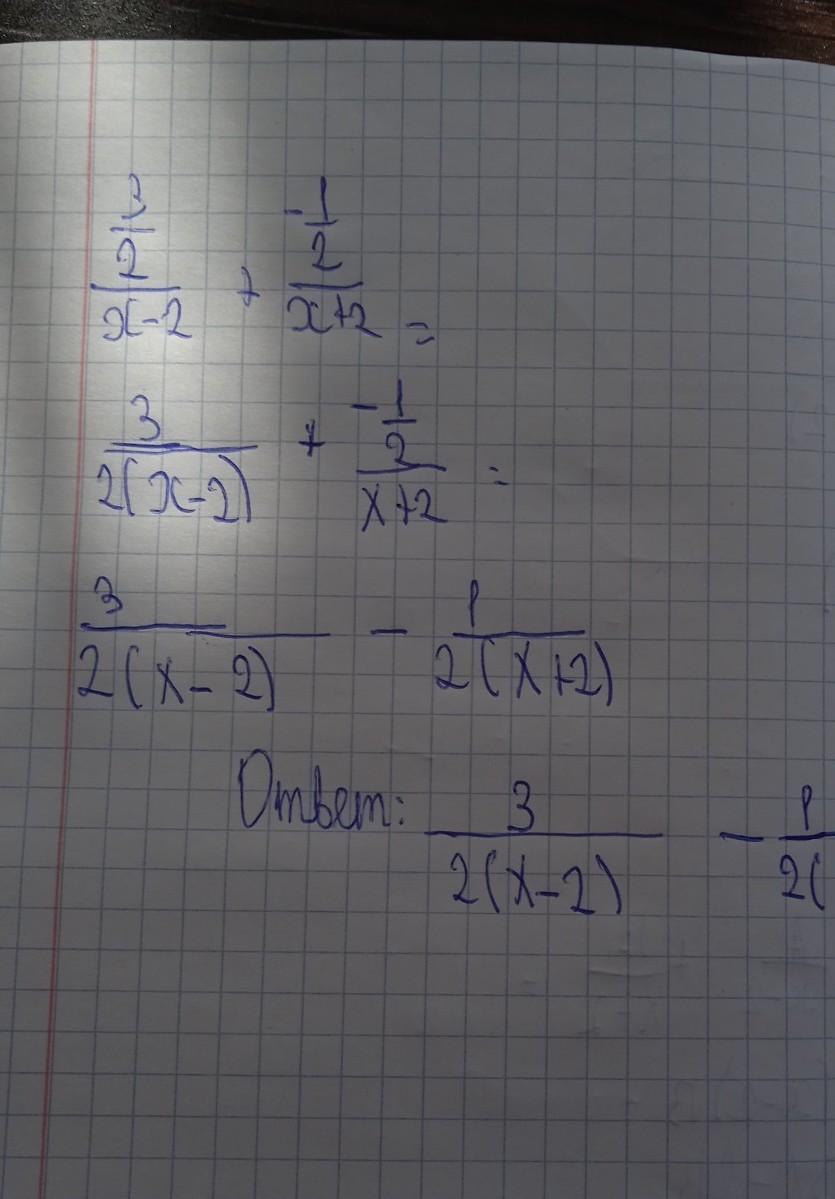 3/2/(x-2) + -1/2/(x+2) =
3/(2(x-2)) + -1/2/(x+2) =
3/(2(x-2)) - 1/(2(x+2))
Ответ: 3/(2(x-2)) - 1/(2(